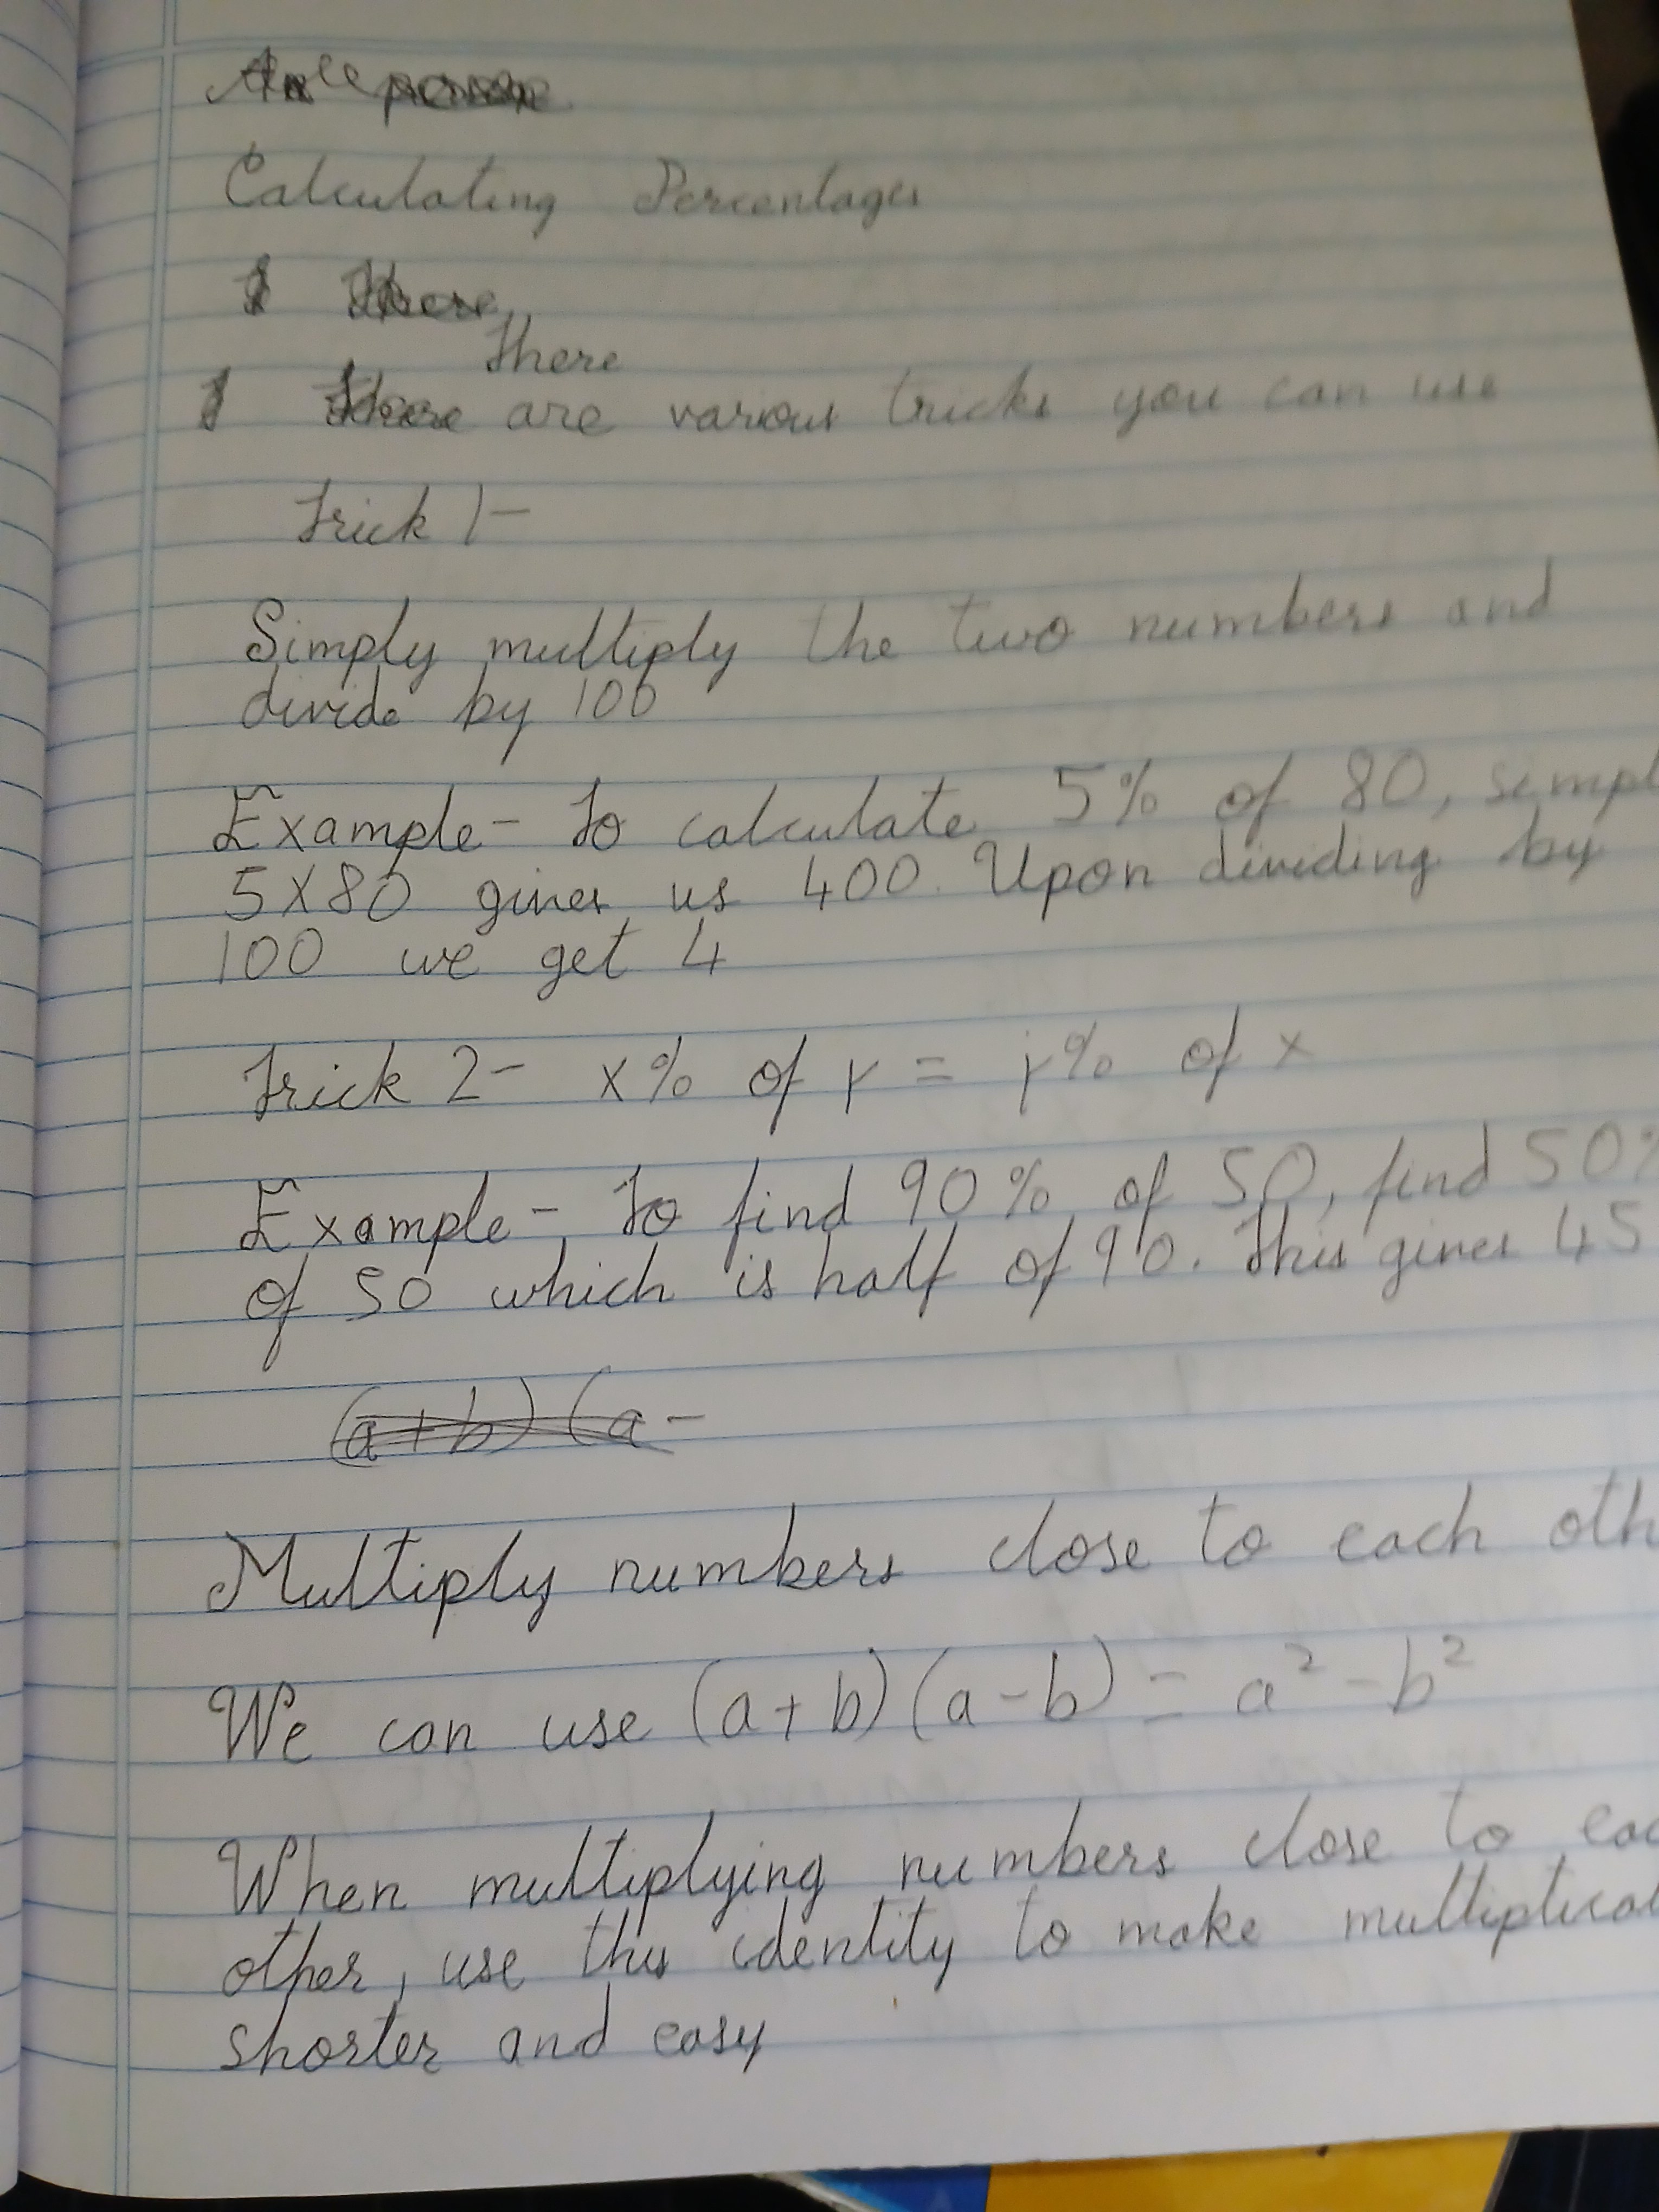 Calculating Percentages
There
are various tricks you can use
Trick 1-
Simply multiply the two numbers and
divide by 100
Example- To calculate 5% of 80, simpl
5X80 gives us 400. Upon dividing by
100 we get 4
Trick 2- x% of y = y% of x
Example- To find 90% of 50, find 50%
of 50 which is half of 90. This gives 45
(a+b) (a-
Multiply numbers close to each oth
We can use (a+b)(a-b) = a² - b²
When multiplying numbers close to eac
other, use this identity to make multiplicat
shorter and easy